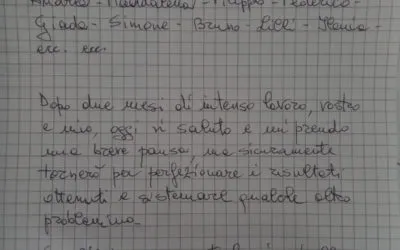 Maddalena - Filippo - Federico -
Giada - Simone - Bruno - Lilli - Ilenia -
ecc. ecc.
Dopo due mesi di intenso lavoro, vostro
e mio, oggi vi saluto e mi prendo
una breve pausa, ma sicuramente
tornerò per perfezionare i risultati
ottenuti e sistemare qualche altro
problemino.